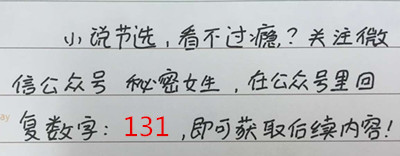 小说节选，看不过瘾？关注微
信公众号 秘密女生，在公众号里回
复数字：131，即可获取后续内容！